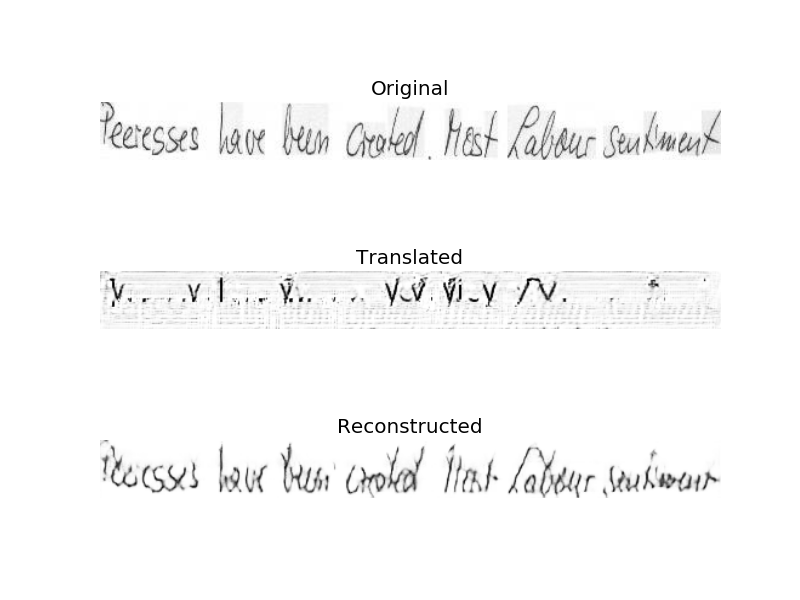 Original
Peeresses have been created. Most Labour sentiment
Translated
Reconstructed
have been created Most Labour sentiment